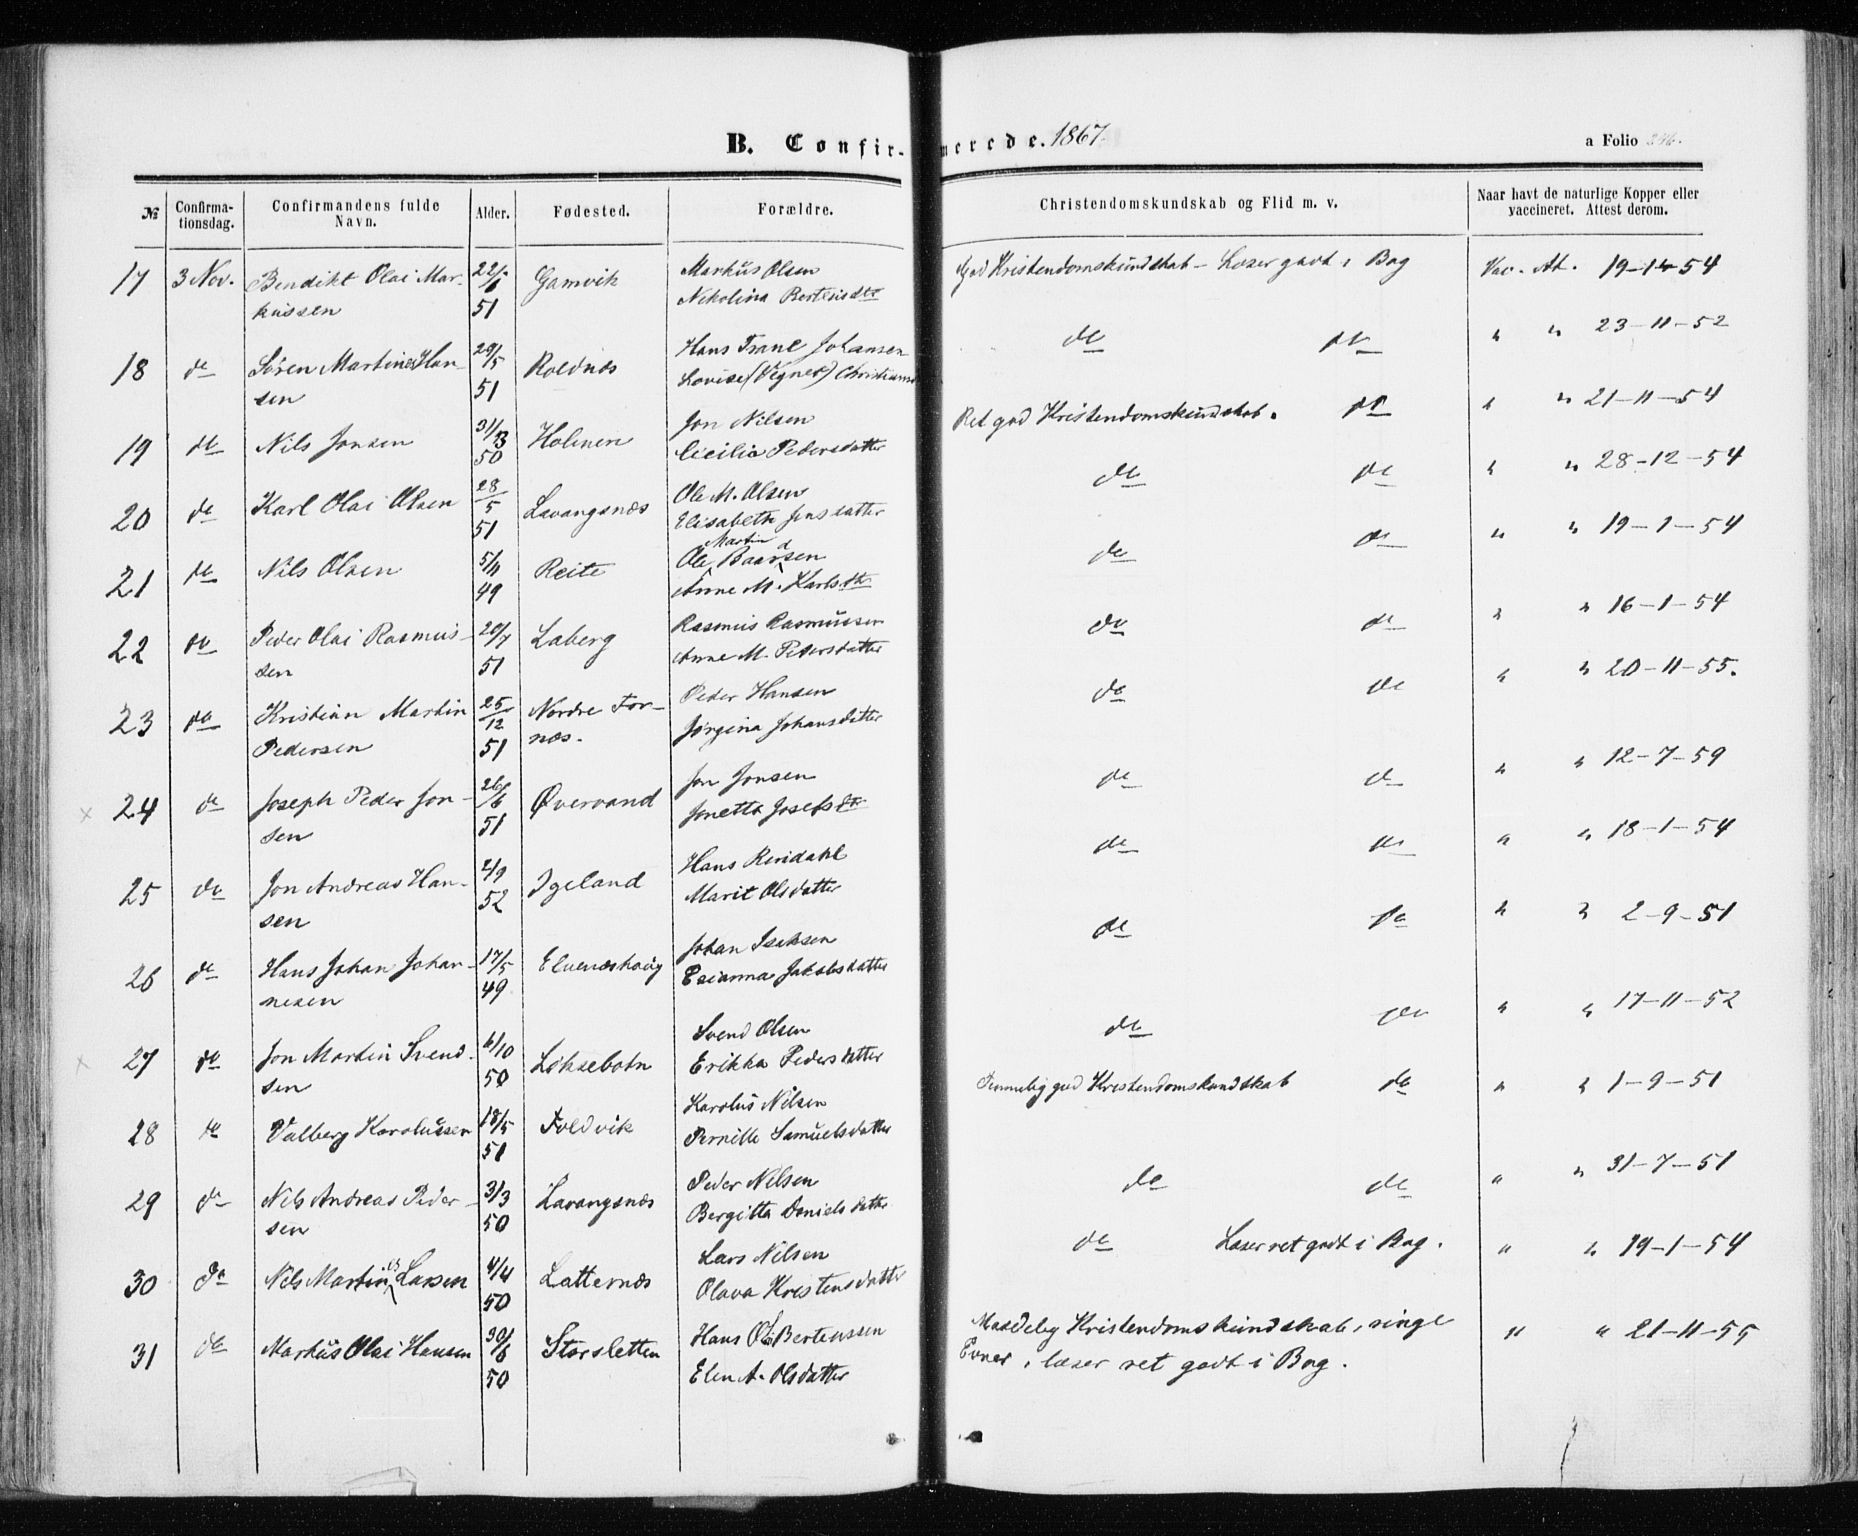 B. Confir-merede. 1867.
a Folio 246.
№ Confirma-tionsdag. Confirmandens fulde Navn. Alder. Fødested. Forældre. Christendomskundskab og Flid m. v. Naar havt de naturlige Kopper eller vaccineret. Attest derom.
17 3 Nov. Bendikt Olai Mar- 22/6 Gamvik Markus Olsen God Kristendomskundskab - Læser godt i Bog Vac. At. 19-1-54
kussen 51 Nikolina Berteusdtr
18 do Søren Martines Han- 20/5 Roldnæs Hans Trane Johansen do do " " 23-11-52
sen 51 Lovise (Vegner) Christiansd
19 do Nils Jonsen 31/3 Holmen Jon Nilsen Ret god Kristendomskundskab. do " " 21-11-54
50 Cicilia Pedersdatter
20 do Karl Olai Olsen 28/5 Lavangsnæs Ole M. Olsen do do " " 28-12-54
51 Elisabeth Jensdatter
21 do Nils Olsen 5/11 Reite Ole Martin Baardsen do do " " 19-1-54
49 Anne M. Karlsdtr
22 do Peder Olai Rasmus- 20/7 Laberg Rasmus Rasmussen do do " " 16-1-54
sen 51 Anne M. Petersdatter
23 do Kristian Martin 25/12 Nordre For- Peder Hansen do do " " 20-11-55.
Pedersen 51 næs. Jørgina Johansdatter
× 24 do Joseph Peder Jon- 26/6 Øvervand Jon Jonsen do do " " 12-7-59
sen 51 Jonetta Josefsdtr
25 do Jon Andreas Han- 2/9 Igeland Hans Rendahl do do " " 18-1-54
sen 52 Marit Olsdatter
26 do Hans Johan Johan- 17/5 Elvenæshaug Johan Isaksen do do " " 2-9-51
nesen 49 Esianna Jakobsdatter
× 27 do Jon Martin Svend- 6/10 Løksebotn Svend Olsen do do " " 17-11-52
sen 50 Erikka Pedersdatter
28 do Valberg Karolussen 18/5 Foldvik Karolus Nilsen Temmelig god Kristendomskundskab do " " 1-9-51
51 Pernille Samuelsdatter
29 do Nils Andreas Peder- 3/3 Lavangsnæs Peder Nilsen do do " " 31-7-51
sen 50 Bergitta Danielsdatter
30 do Nils Martin Larsen 4/4 Latternæs Lars Nilsen do Læser ret godt i Bog. " " 19-1-54
50 Olava Kristensdatter
31 do Markus Olai Hansen 30/6 Storsletten Hans Ol. Berteussen Maadelig Kristendomskundskab, ringe " " 21-11-55
50 Elen A. Olsdatter Evner, læser ret godt i Bog.